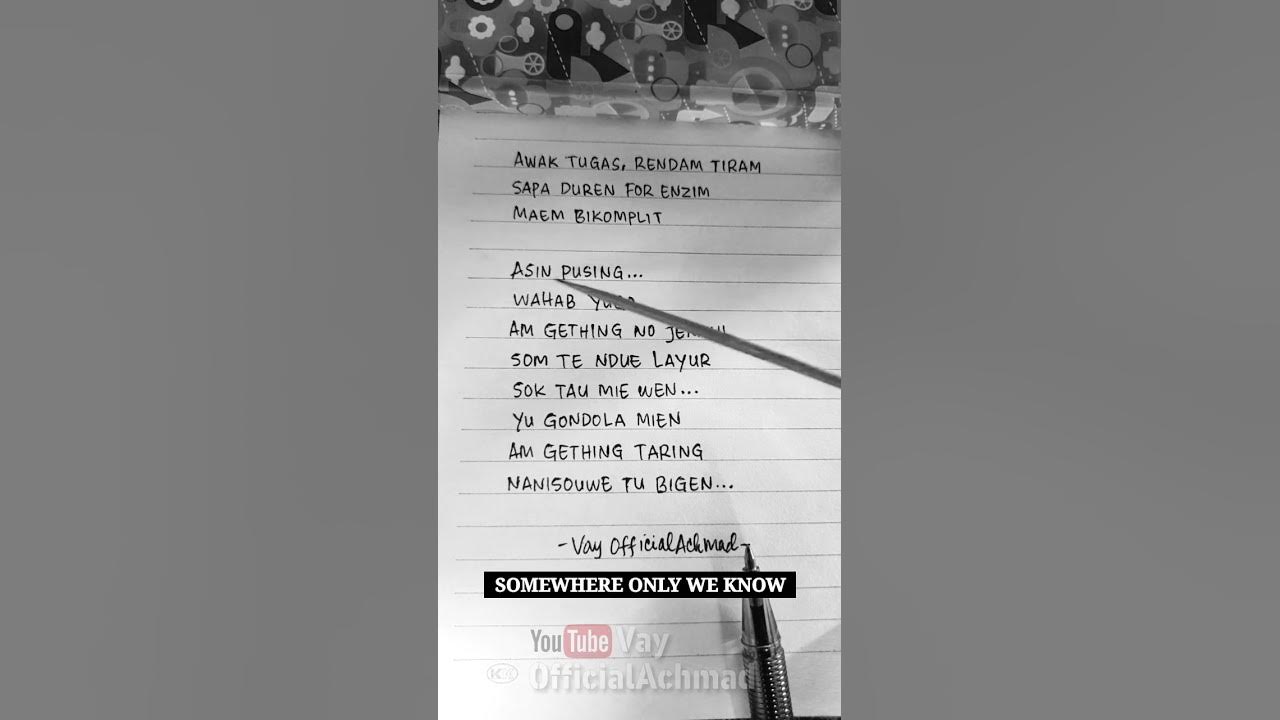 AWAK TUGAS, RENDAM TIRAM
SAPA DUREN FOR ENZIM
MAEM BIKOMPLIT
ASIN PUSING...
WAHAB
AM GETHING NO
SOM TE NDUE LAYUR
SOK TAU MIE WEN...
YU GONDOLA MIEN
AM GETHING TARING
NANISOUWE TU BIGEN...
-Vay OfficialAchmad-
SOMEWHERE ONLY WE KNOW
YouTube Vay
OfficialAchmad